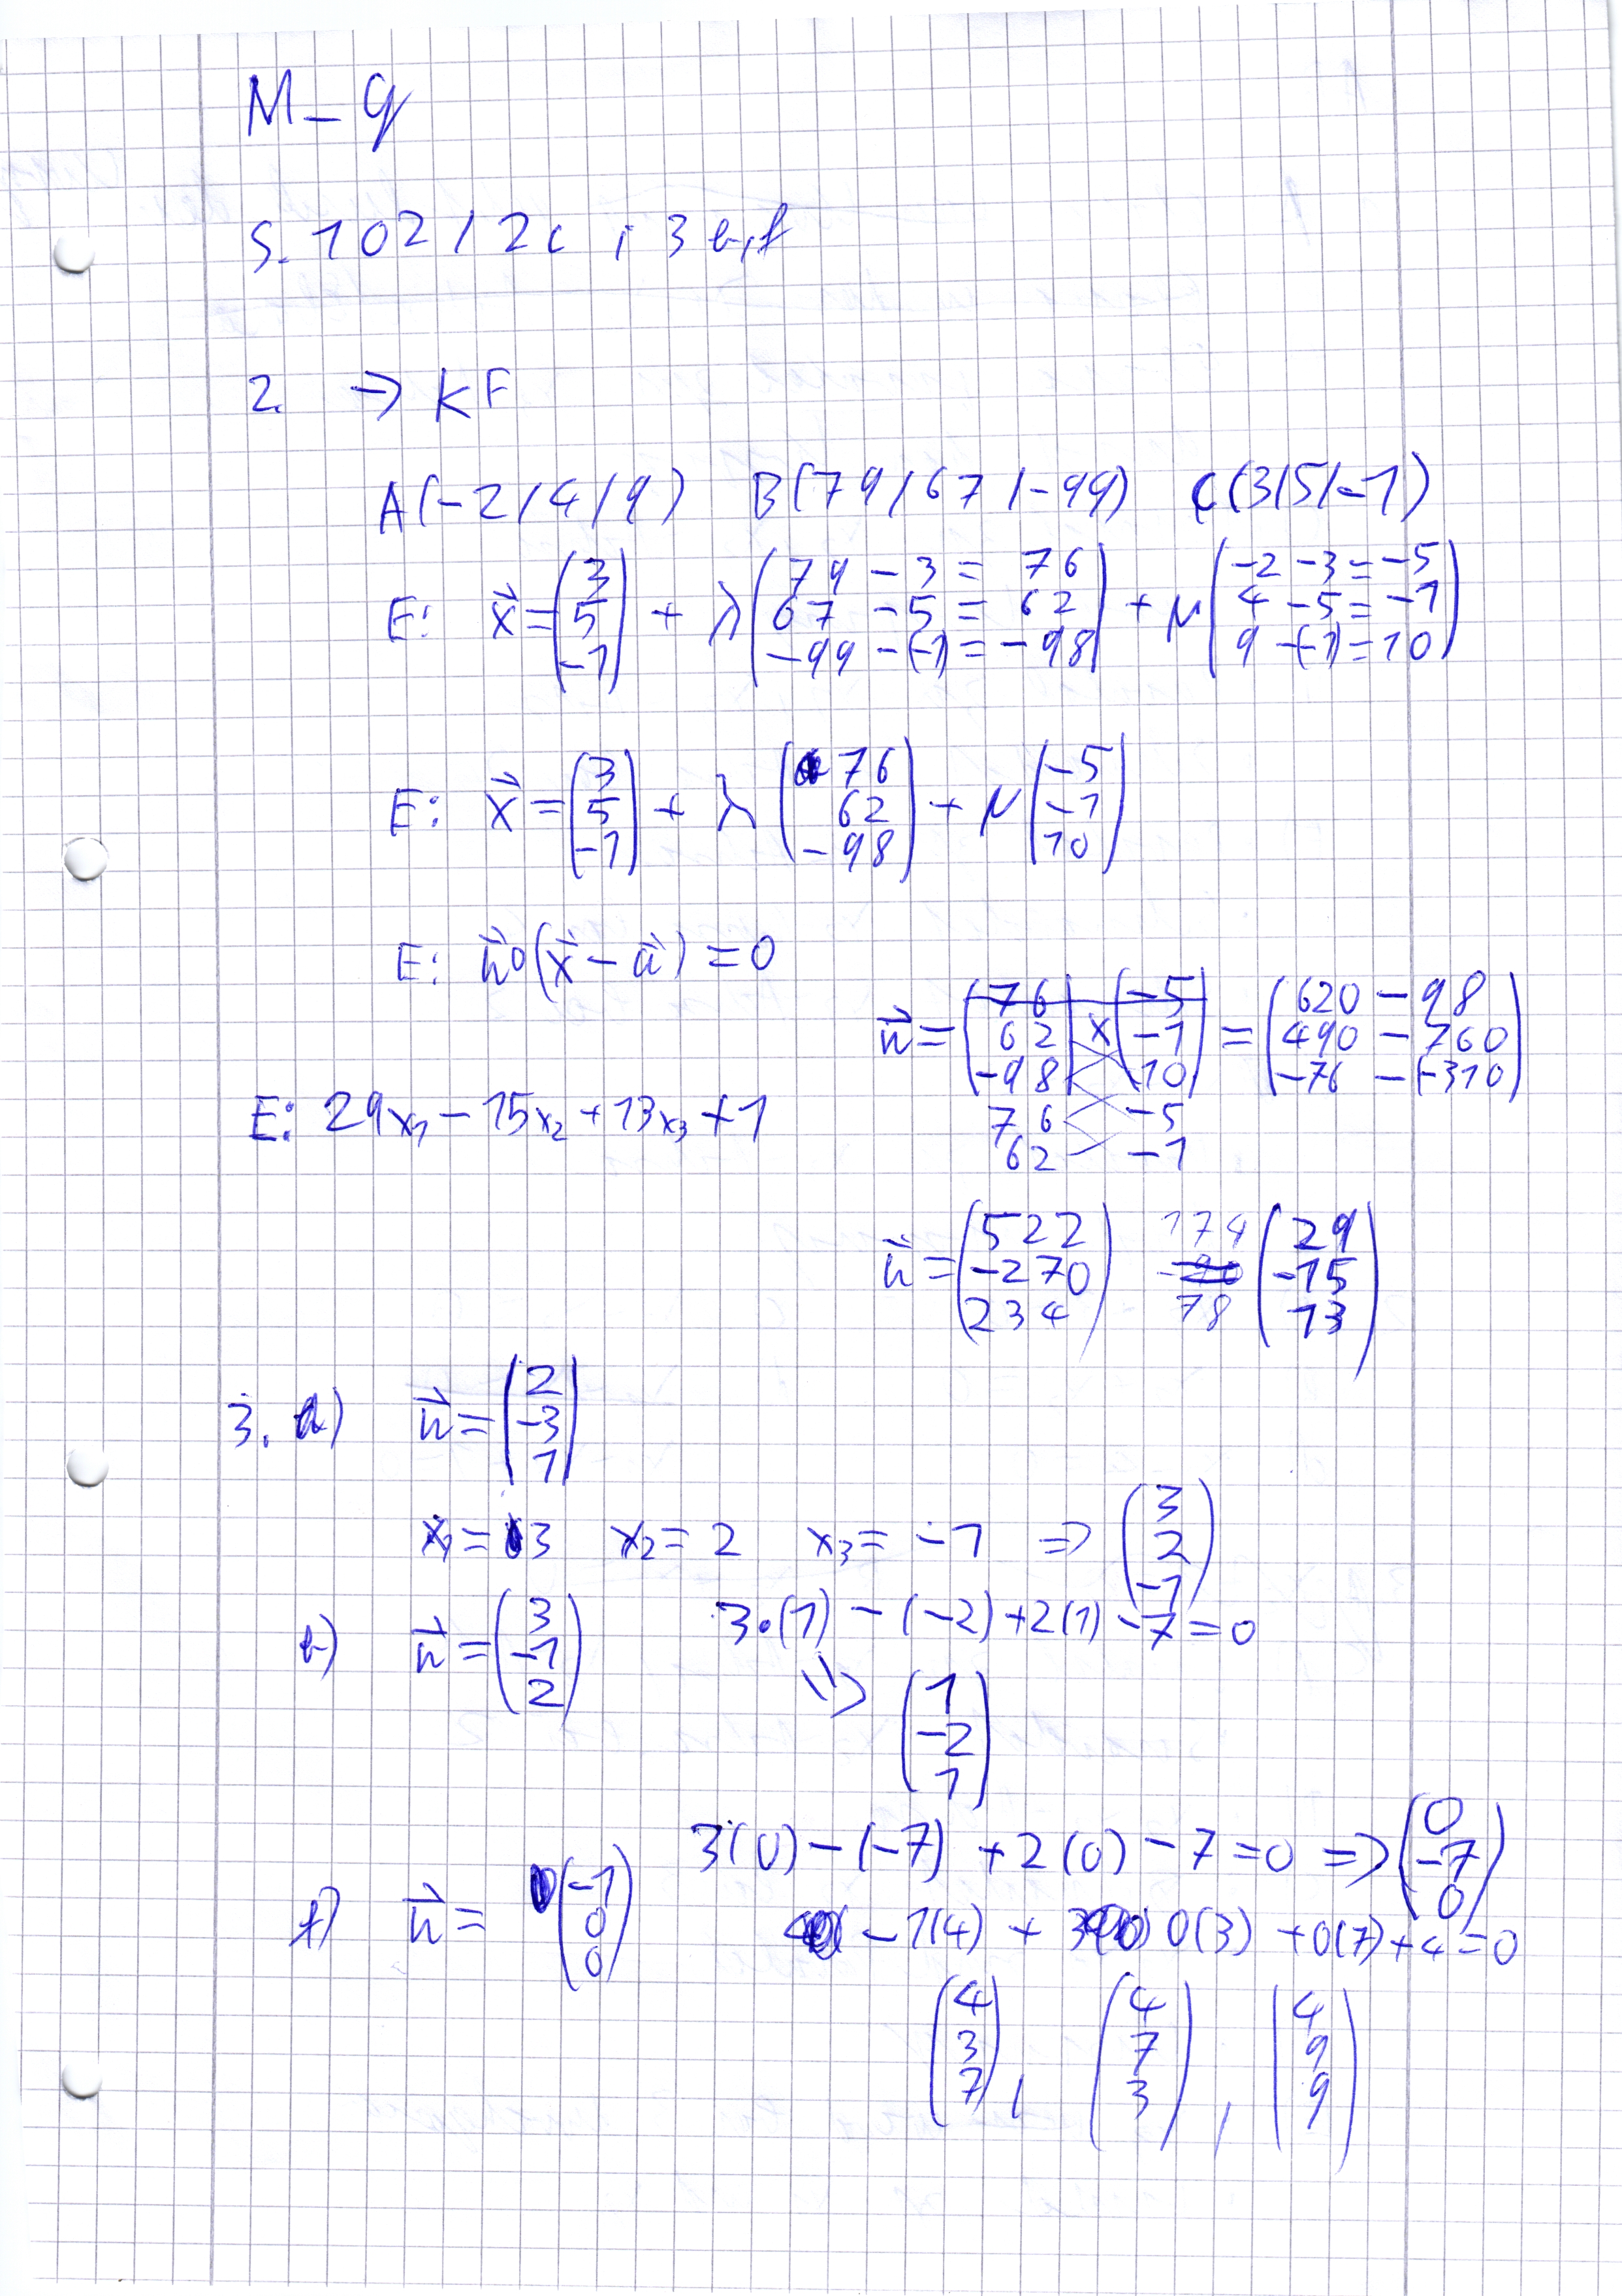 M_9
S. 102 / 2c ; 3 b,f
2. → KF
A(-2/4/9) B(79/67/-99) C(3/5/-1)
E: x⃗ = (3 5 -1) + λ (79 - 3 = 76 67 - 5 = 62 -99 - (-1) = -98) + μ (-2 - 3 = -5 4 - 5 = -1 9 - (-1) = 10)
E: x⃗ = (3 5 -1) + λ (76 62 -98) + μ (-5 -1 10)
E: n⃗ ∘ (x⃗ - a⃗) = 0
n⃗ = (76 62 -98) × (-5 -1 10) = (620 - 98 490 - 760 -76 - (-310))
76 -5
62 -1
E: 29x₁ - 15x₂ + 13x₃ + 1
n⃗ = (522 -270 234) 174 78 (29 -15 13)
3. a) n⃗ = (2 -3 1)
x₁ = 3 x₂ = 2 x₃ = -1 => (3 2 -1)
b) n⃗ = (3 -1 2) 3·(1) - (-2) + 2(1) - 7 = 0
=> (1 -2 1)
3(0) - (-7) + 2(0) - 7 = 0 => (0 -7 0)
f) n⃗ = (-1 0 0) - 1(4) + 0(3) + 0(7) + 4 = 0
(4 3 7), (4 7 3), (4 9 9)